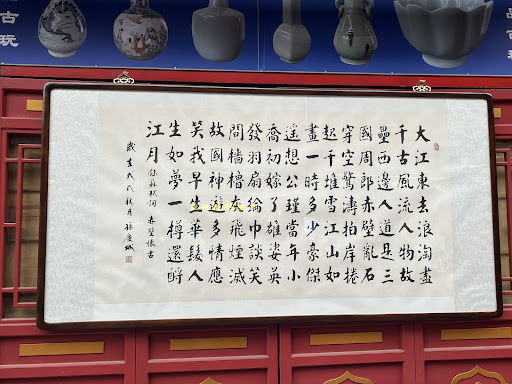 古玩
大江東去浪淘盡
千古風流人物故
壘西邊人道是三
國周郎赤壁亂石
穿空驚濤拍岸捲
起千堆雪江山如
畫一時多少豪傑
遥想公瑾當年小
喬初嫁了雄姿英
發羽扇綸巾談笑
間檣櫓灰飛煙滅
故國神遊多情應
笑我早生華髮人
生如夢一樽還酹
江月 錄蘇軾詞 赤壁懷古
歲在戊戌秋月